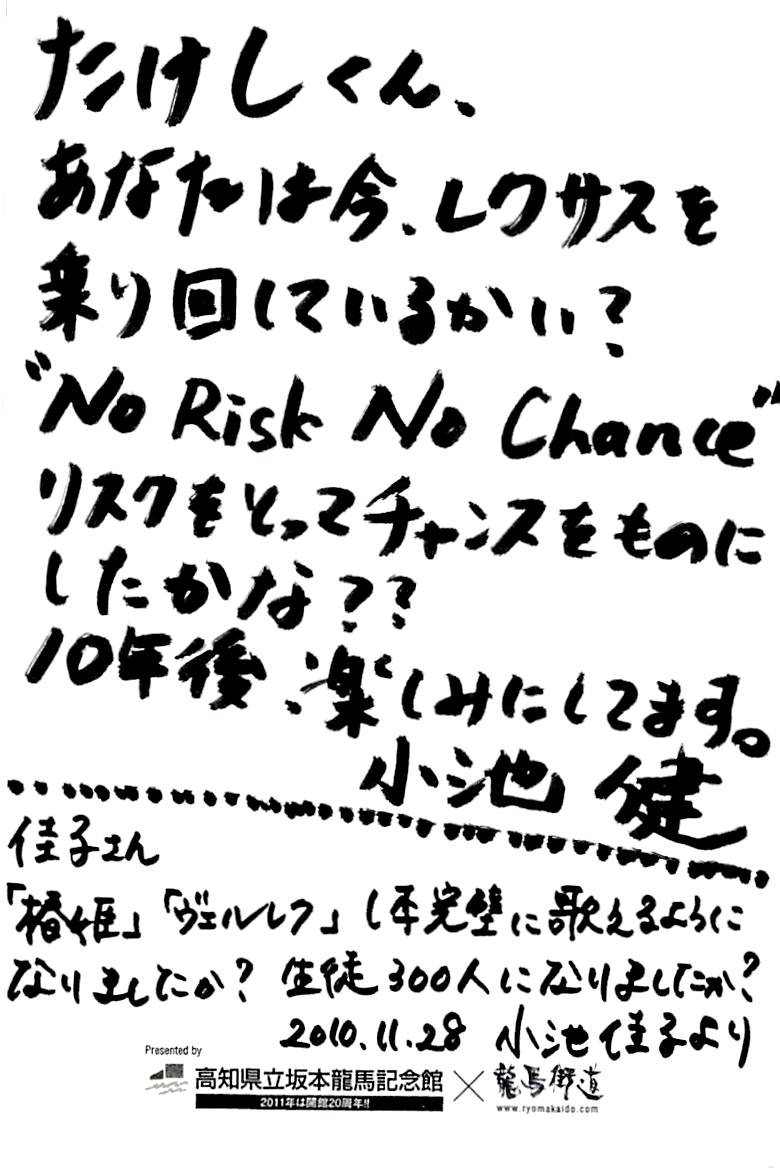 たけしくん、
あなたは今、レクサスを
乗り回しているかい?
"No Risk No Chance"
リスクをとってチャンスをものに
したかな??
10年後、楽しみにしてます。
小池 健
佳子さん
「椿姫」「ヴェルレク」は完璧に歌えるように
なりましたか? 生徒300人になりましたか?
2010.11.28 小池佳子より
Presented by
高知県立坂本龍馬記念館×龍馬街道
2011年は開館20周年!!
www.ryomakaido.com